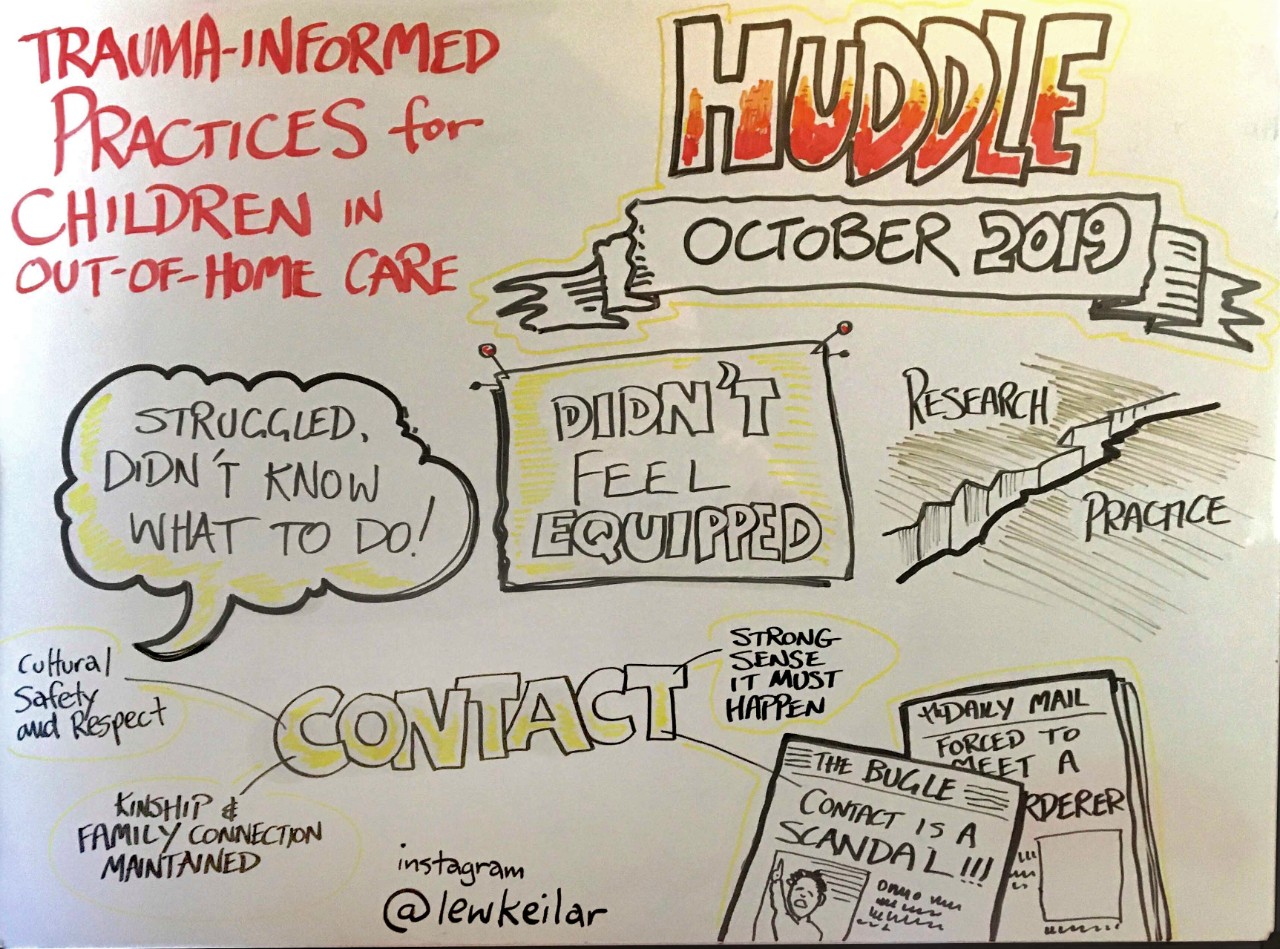 TRAUMA-INFORMED
PRACTICES for
CHILDREN IN
OUT-OF-HOME CARE
HUDDLE
OCTOBER 2019
STRUGGLED,
DIDN'T KNOW
WHAT TO DO!
DIDN'T
FEEL
EQUIPPED
RESEARCH
PRACTICE
Cultural
Safety
and Respect
CONTACT
STRONG
SENSE
IT MUST
HAPPEN
KINSHIP &
FAMILY CONNECTION
MAINTAINED
THE BUGLE
CONTACT IS A
SCANDAL!!!
DAILY MAIL
FORCED TO
MEET A
RDERER
instagram
@lewkeilar